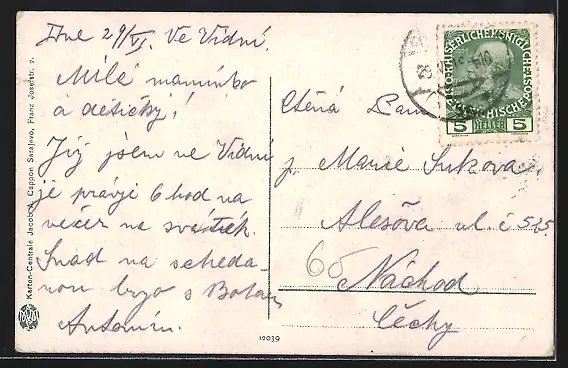 Dne 29/VI. Ve Vídni.
Milé maminko
a dětičky!
Již jsem ve Vídni
je právě 6 hod na
večer na svátek.
Snad na shleda-
nou brzo s Bohem
Antonín.
Ctěná Paní
p. Marie Suková
Alešova ul. č 525.
60
Náchod
Čechy
5 HELLER 5
Karton-Centrale Jacob A. Cappon Sarajevo, Franz Josefstr. 9.
12039